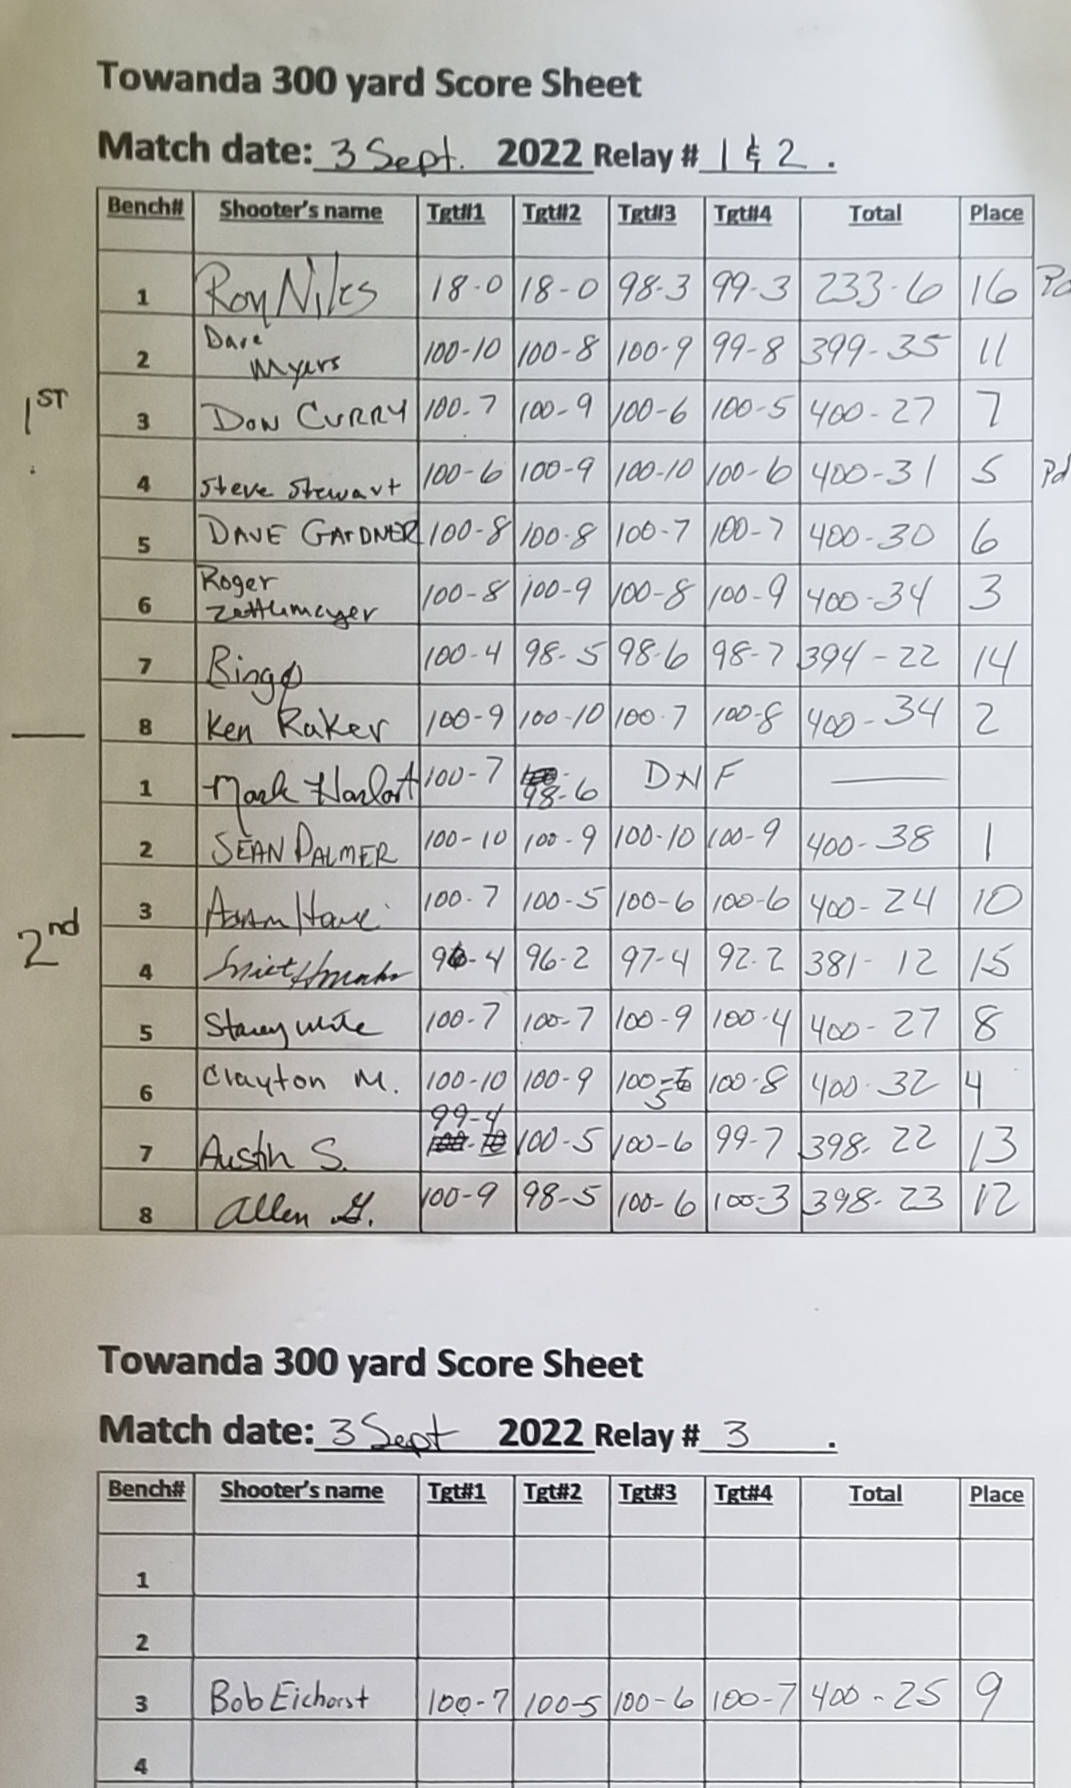 Towanda 300 yard Score Sheet
Match date: 3 Sept. 2022 Relay # 1 & 2 .
Bench# Shooter's name Tgt#1 Tgt#2 Tgt#3 Tgt#4 Total Place
1 Roy Niles 18-0 18-0 98-3 99-3 233-6 16 Pd
2 Dave Myers 100-10 100-8 100-9 99-8 399-35 11
1ST
3 DON CURRY 100-7 100-9 100-6 100-5 400-27 7
4 Steve Stewart 100-6 100-9 100-10 100-6 400-31 5 Pd
5 DAVE GARDNER 100-8 100-8 100-7 100-7 400-30 6
6 Roger Zettlemoyer 100-8 100-9 100-8 100-9 400-34 3
7 Bingo 100-4 98-5 98-6 98-7 394-22 14
8 Ken Raker 100-9 100-10 100-7 100-8 400-34 2
1 Mark 100-7 98-6 DNF
2 SEAN PALMER 100-10 100-9 100-10 100-9 400-38 1
3 Adam 100-7 100-5 100-6 100-6 400-24 10
2nd
4 96-4 96-2 97-4 92-2 381-12 15
5 Stacey White 100-7 100-7 100-9 100-4 400-27 8
6 Clayton M. 100-10 100-9 100-5 100-8 400-32 4
7 Austin S. 99-4 100-5 100-6 99-7 398-22 13
8 Allen G. 100-9 98-5 100-6 100-3 398-23 12
Towanda 300 yard Score Sheet
Match date: 3 Sept 2022 Relay # 3 .
Bench# Shooter's name Tgt#1 Tgt#2 Tgt#3 Tgt#4 Total Place
1
2
3 Bob Eichorst 100-7 100-5 100-6 100-7 400-25 9
4